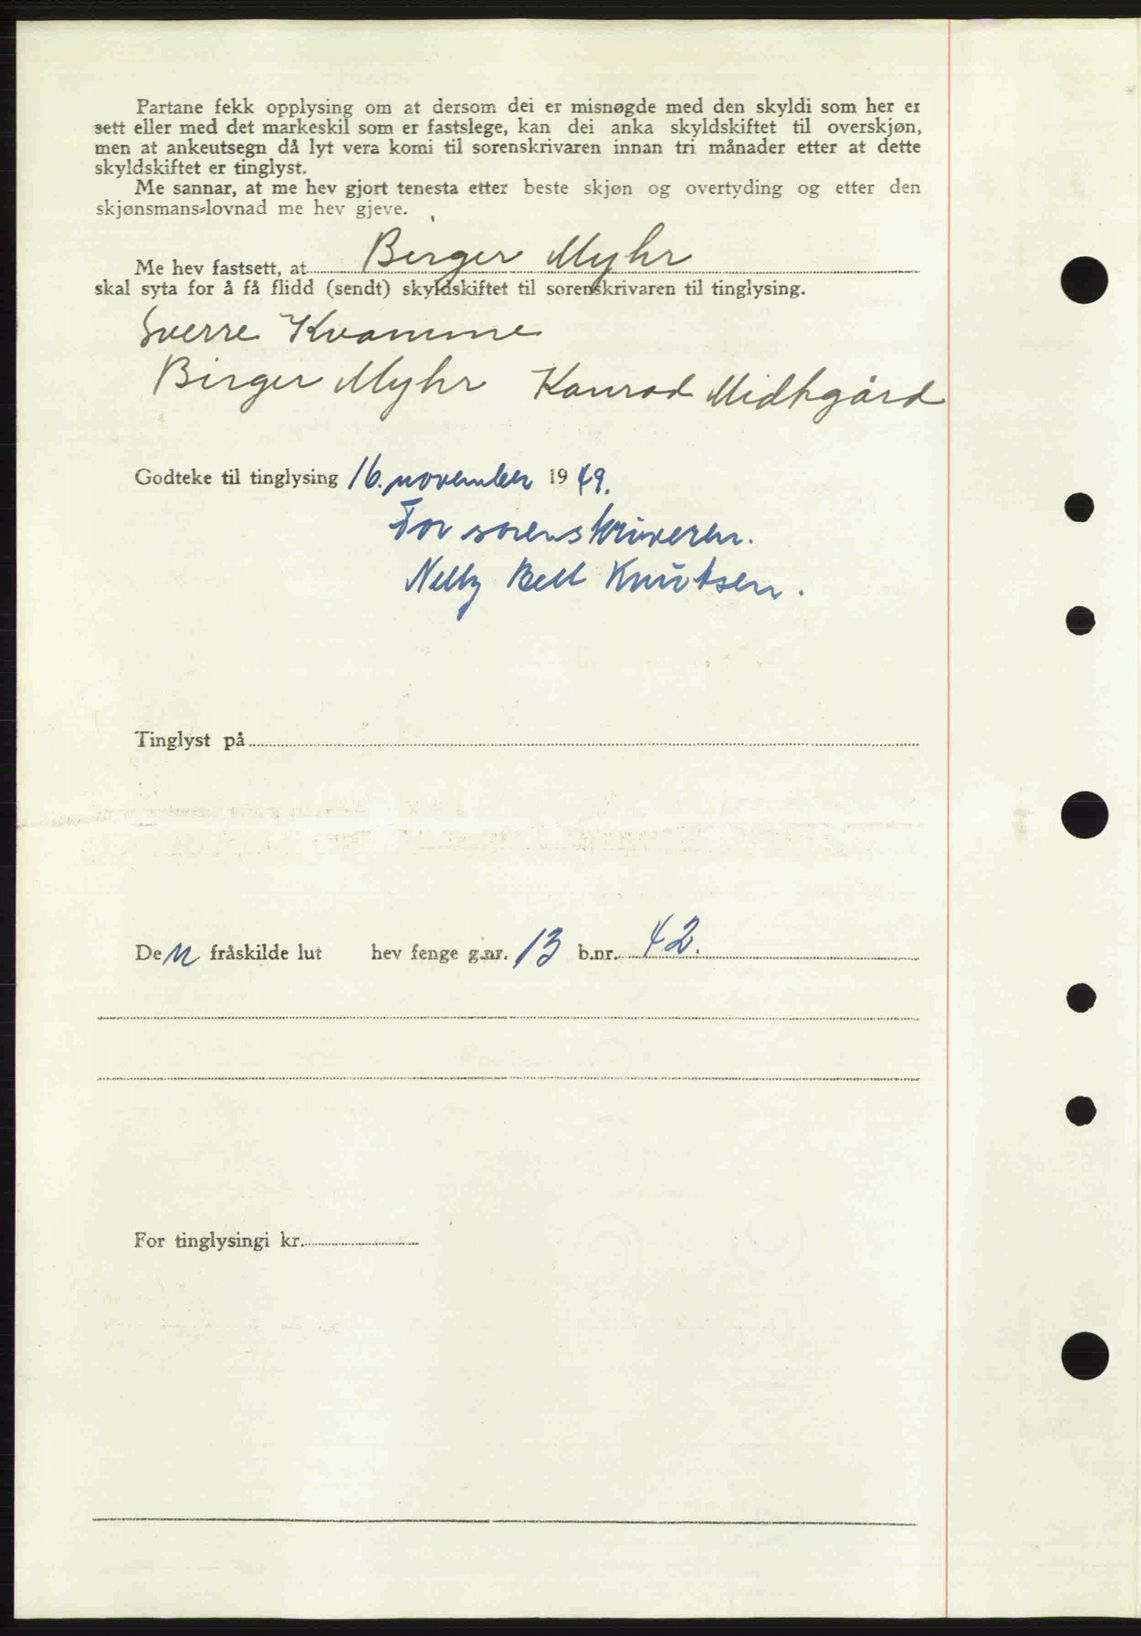 Partane fekk opplysing om at dersom dei er misnøgde med den skyldi som her er
sett eller med det markeskil som er fastslege, kan dei anka skyldskiftet til overskjøn,
men at ankeutsegn då lyt vera komi til sorenskrivaren innan tri månader etter at dette
skyldskiftet er tinglyst.
Me sannar, at me hev gjort tenesta etter beste skjøn og overtyding og etter den
skjønsmans-lovnad me hev gjeve.
Me hev fastsett, at Birger Myhr
skal syta for å få flidd (sendt) skyldskiftet til sorenskrivaren til tinglysing.
Sverre Kvamme
Birger Myhr Konrad Midtgård
Godteke til tinglysing 16. november 1949.
For sorenskriveren.
Nelly Bell Knutsen.
Tinglyst på
Den fråskilde lut hev fenge g.nr. 13 b.nr. 42.
For tinglysingi kr.